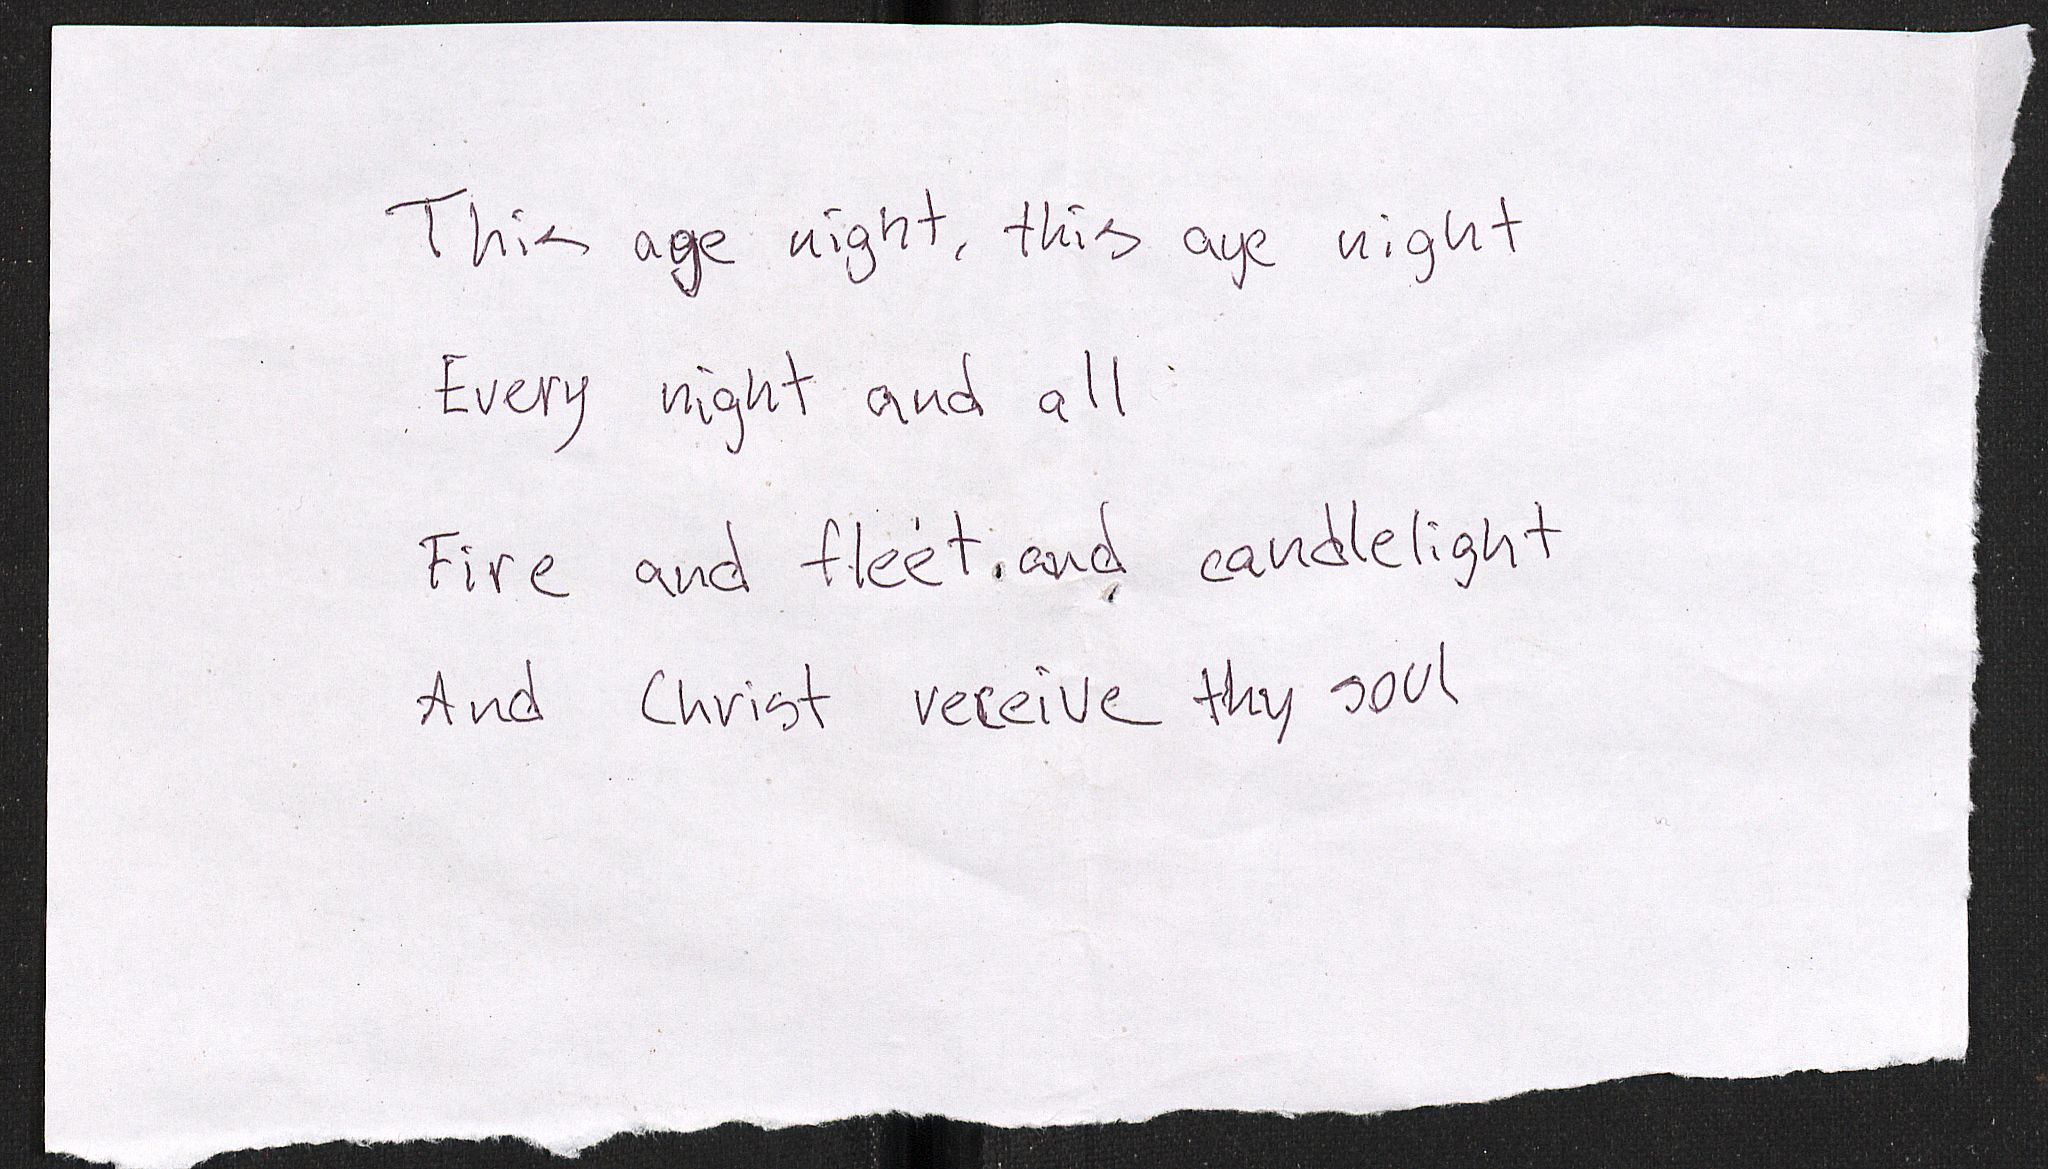 This age night, this aye night
Every night and all
Fire and fleet. and candlelight
And Christ receive thy soul